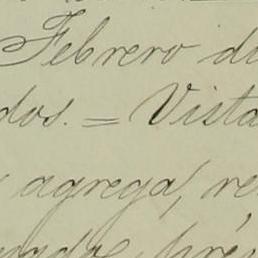 Febrero di
dos. = Vista
agrega, re